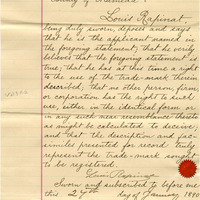 County of Alameda
Louis Rapinat
being duly sworn, deposes and says
that he is the applicant named in
the forgoing statement; that he verily
believes that the forgoing statement is
true; that he has at this time a right
to the use of the trade-mark therein
described; that no other person, firm
or corporation has the right to such
use, either in the identical form or
in any such near resemblance thereto
as might be calculated to deceive;
and that the description and fac-
similes presented for record truly
represent the trade-mark sought
to be registered.
Louis Rapinat
Sworn and subscribed to before me
this 27th day of January, 1890